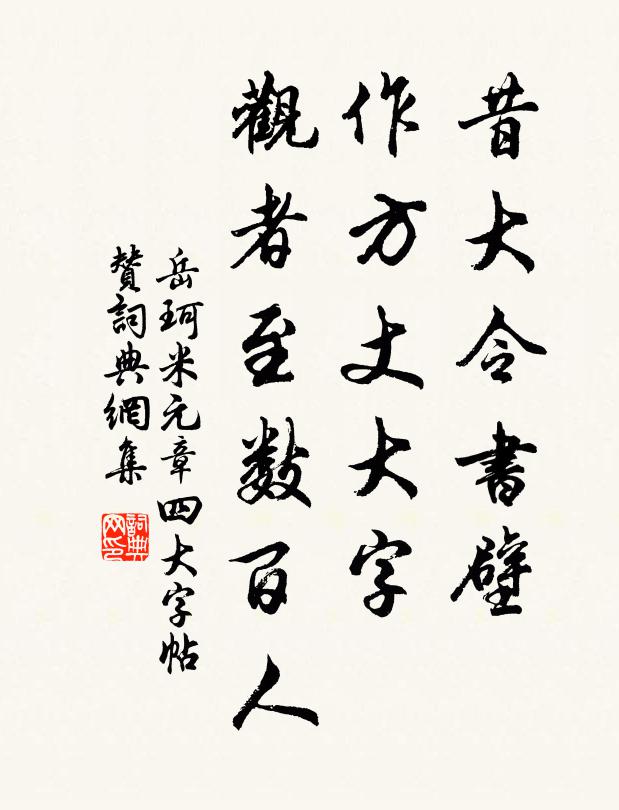 昔大令書壁
作方丈大字
觀者至數百人
岳珂米元章四大字帖
贊詞典網集
詞典
网印